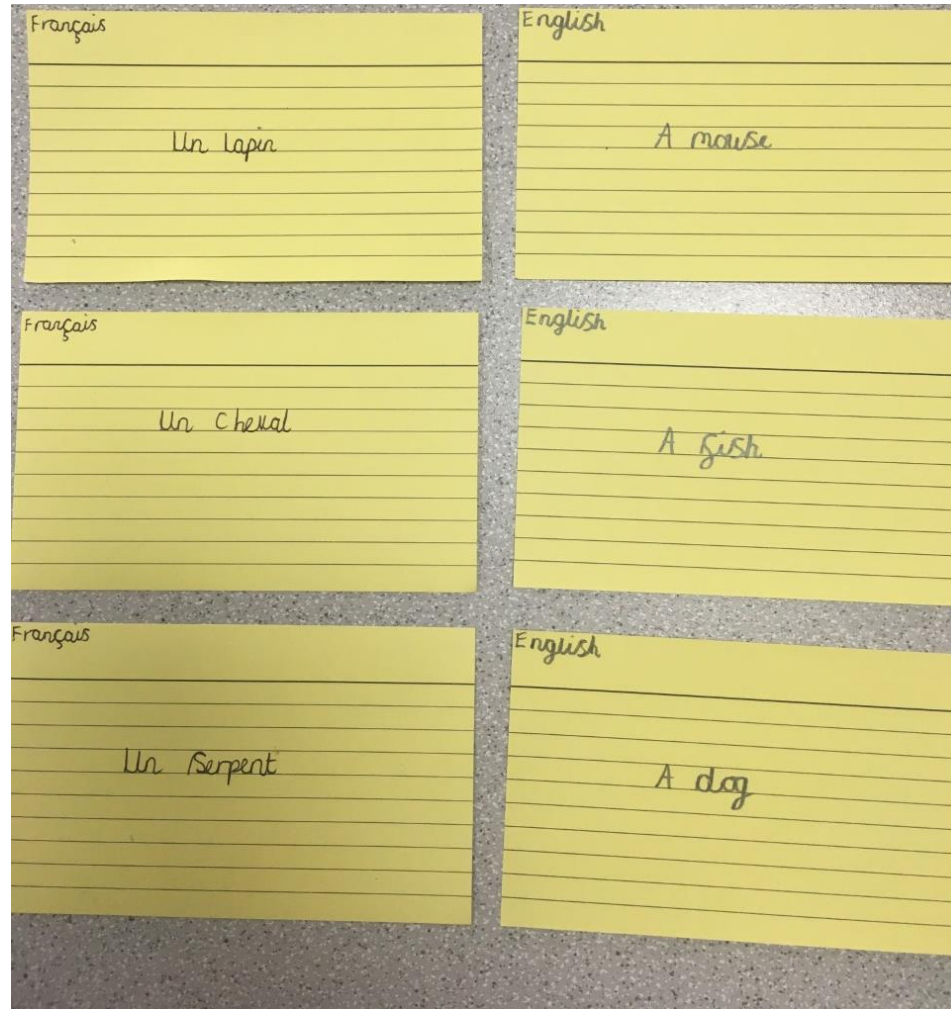 Français
Un lapin
English
A mouse
Français
Un Cheval
English
A fish
Français
Un Serpent
English
A dog